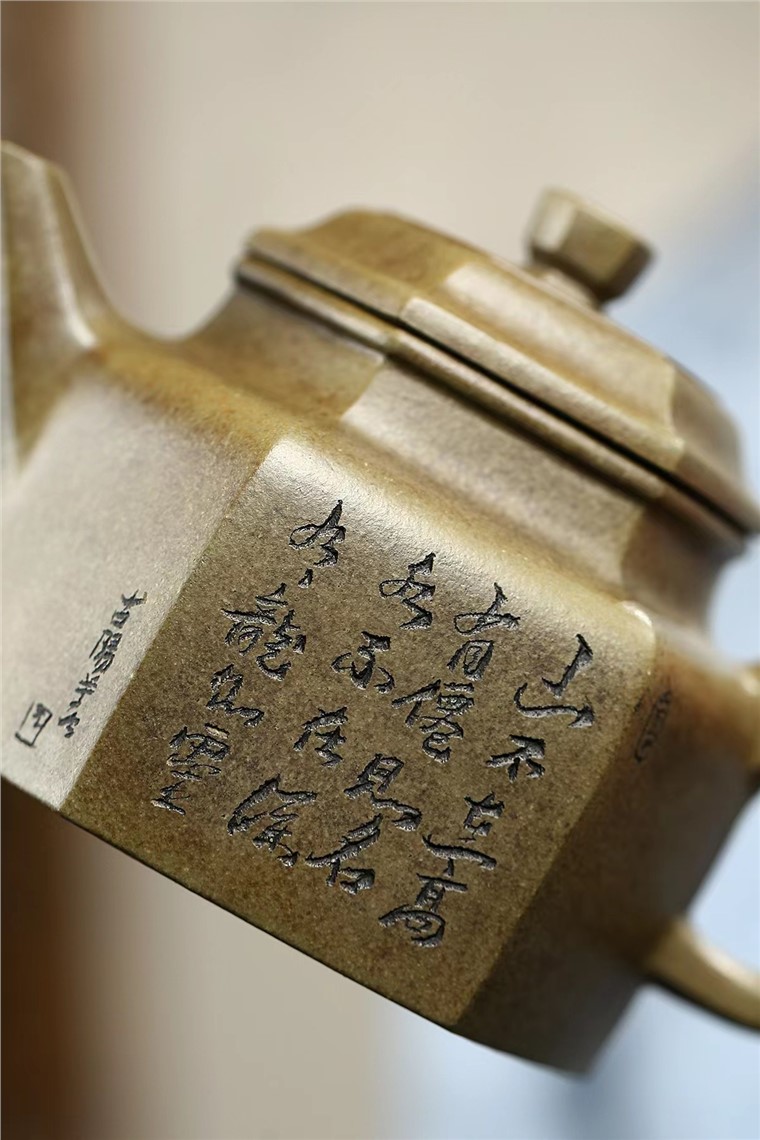 山不在高
有僊則名
水不在深
有龍則靈
吉陽